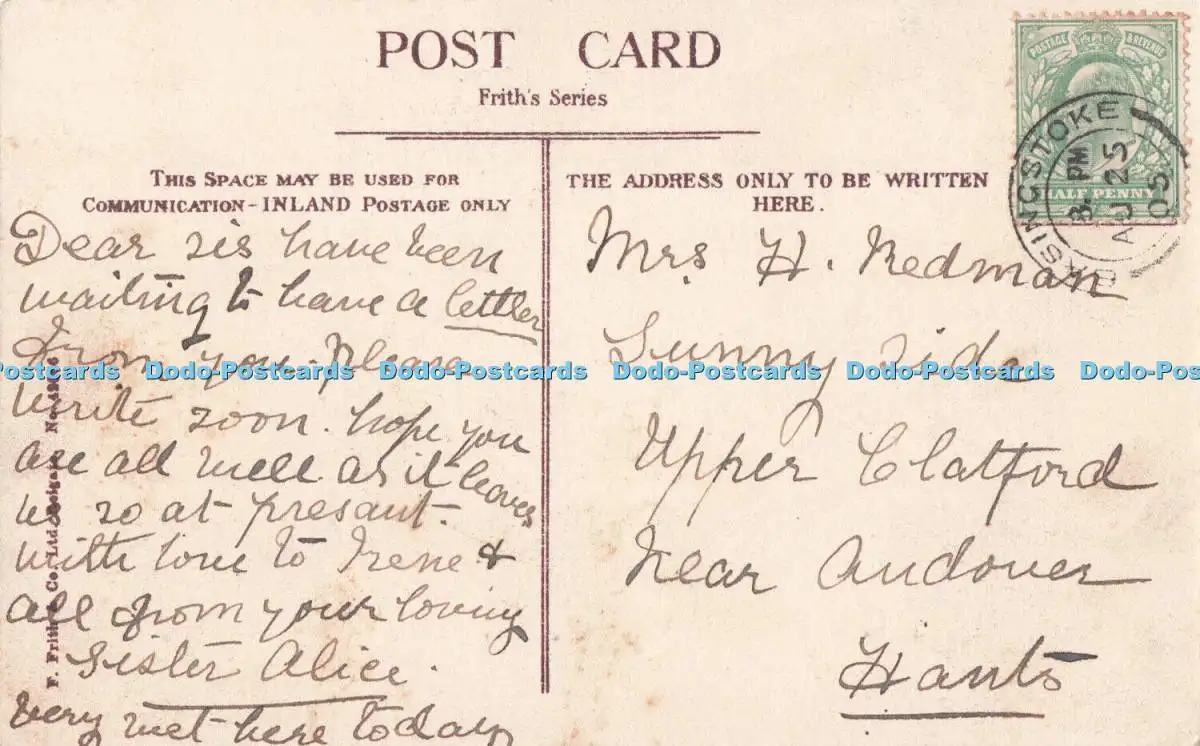 POST CARD
Frith's Series
THIS SPACE MAY BE USED FOR
COMMUNICATION - INLAND POSTAGE ONLY
Dear sis have been
waiting to have a letter
from you. please
write soon. hope you
are all well as it leaves
us so at presant.
with love to Irene &
all from your loving
Sister Alice.
Very wet here today
F. Frith & Co. Ltd. Reigate No.
THE ADDRESS ONLY TO BE WRITTEN
HERE.
Mrs H. Redman
Sunny side
Upper Clatford
Near Andover
Hants
POSTAGE & REVENUE
HALF PENNY
BASINGSTOKE
8. PM
AU 25
05
Dodo-Postcards Dodo-Postcards Dodo-Postcards Dodo-Postcards Dodo-Postcards Dodo-Pos